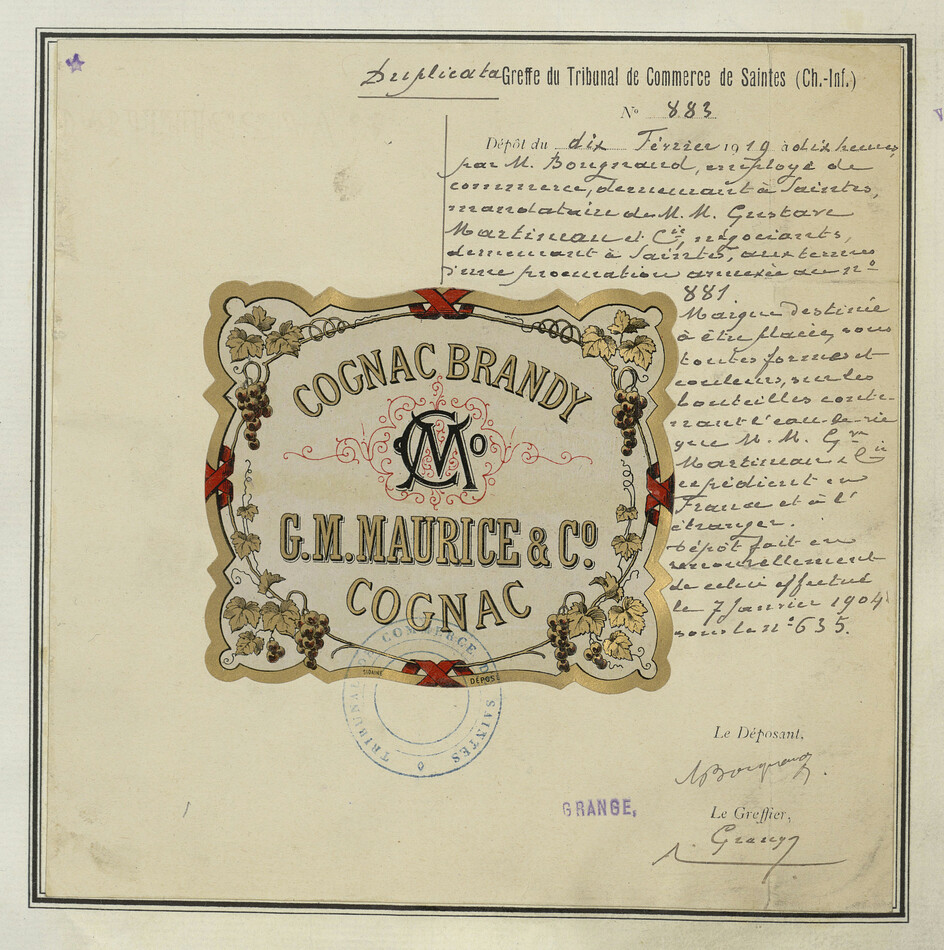 Duplicata Greffe du Tribunal de Commerce de Saintes (Ch.-Inf.)
N° 883
Dépôt du dix Février 1919 à dix heures,
par M. Bougnaud, employé de
commerce, demeurant à Saintes,
mandataire de M. M. Gustave
Martineau et Cie, négociants,
demeurant à Saintes, aux termes
d'une procuration annexée au n°
881.
Marque destinée
à être placée, sous
toutes formes et
couleurs, sur les
bouteilles conte-
nant l'eau-de-vie
que M. M. Gve
Martineau & Cie
expédient en
France et à l'
étranger.
Dépôt fait en
renouvellement
de celui effectué
le 7 Janvier 1904
sous le n° 635.
COGNAC BRANDY
G.M. MAURICE & Co
COGNAC
DÉPOSÉ
TRIBUNAL DE COMMERCE DE SAINTES
Le Déposant,
Bougnaud
GRANGE,
Le Greffier,
Grange